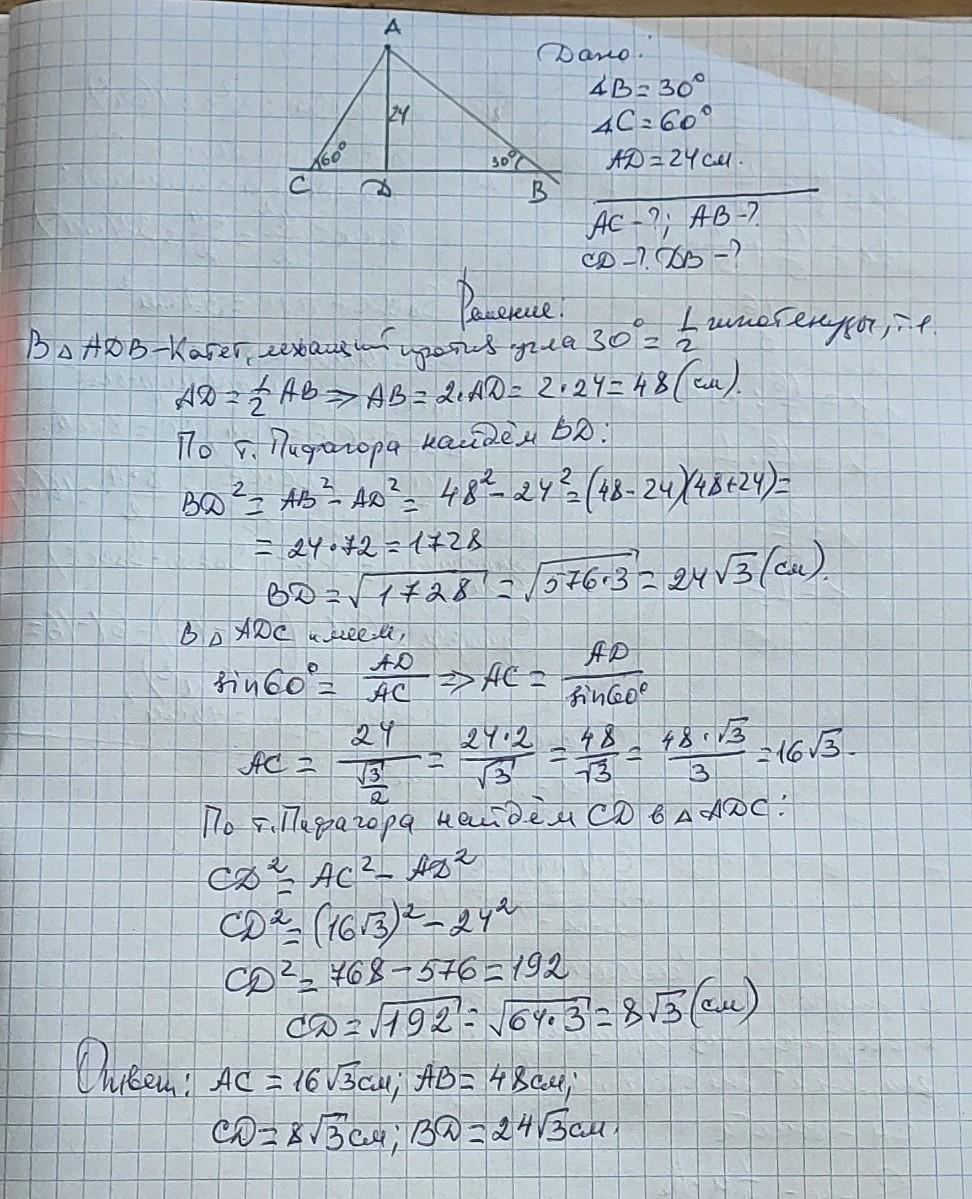 A
24
60°
30°
C
D
B
Дано:
∠B = 30°
∠C = 60°
AD = 24 см.
AC - ?; AB - ?
CD - ?. DB - ?
Решение:
В △ ADB - Катет, лежащий против угла 30° = 1/2 гипотенузы, т.е.
AD = 1/2 AB ⇒ AB = 2·AD = 2·24 = 48 (см).
По т. Пифагора найдём BD:
BD² = AB² - AD² = 48² - 24² = (48-24)(48+24) =
= 24·72 = 1728
BD = √1728 = √576·3 = 24√3 (см).
В △ ADC имеем,
sin60° = AD/AC ⇒ AC = AD/sin60°
AC = 24/(√3/2) = 24·2/√3 = 48/√3 = 48·√3/3 = 16√3.
По т. Пифагора найдём CD в △ ADC:
CD² = AC² - AD²
CD² = (16√3)² - 24²
CD² = 768 - 576 = 192
CD = √192 = √64·3 = 8√3 (см)
Ответ: AC = 16√3 см; AB = 48 см;
CD = 8√3 см; BD = 24√3 см.